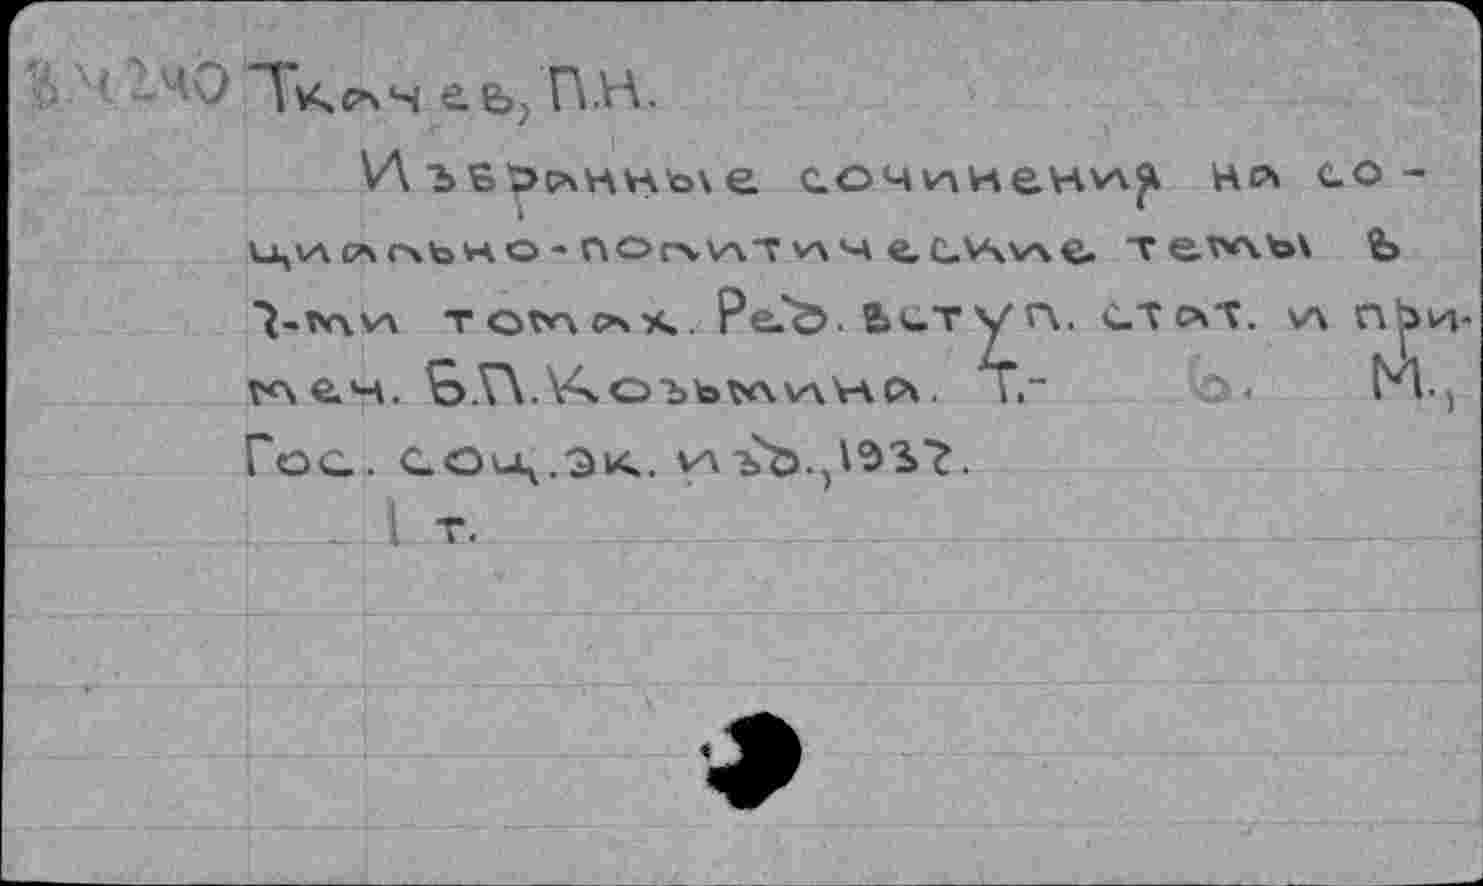 Ткачев, П.Н.
Избранные сочинения на со-
циально-политические темы в
7-ми томах. Ред. вступ. стат. и при-
меч. Б.П. Козьмина. Т.- М.,
Гос. соц.эк. изд., 1932.
1 т.